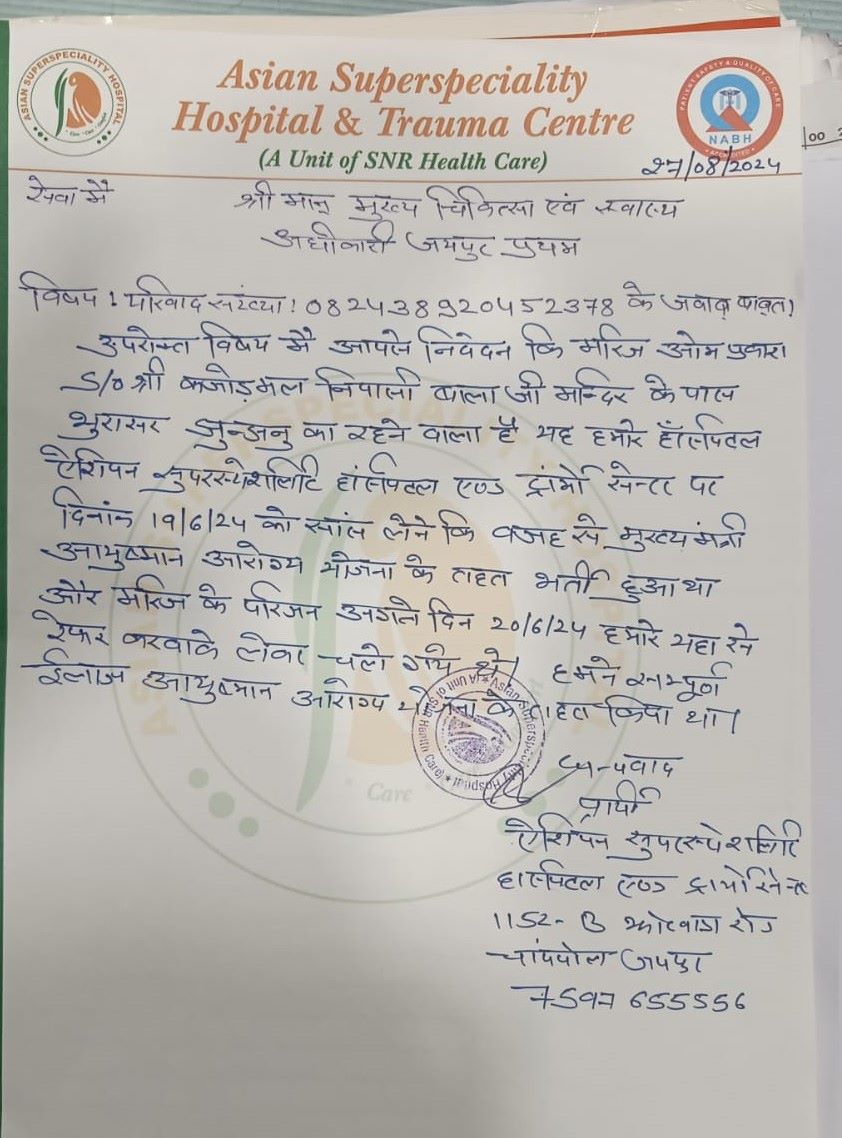 ASIAN SUPERSPECIALITY HOSPITAL
Asian Superspeciality
Hospital & Trauma Centre
(A Unit of SNR Health Care)
PATIENT SAFETY & QUALITY OF CARE
NABH
ACCREDITED
27/08/2024
सेवा मै
श्री मान् मुख्य चिकित्सा एवं स्वास्थ्य
अधीकारी जयपुर प्रथम
विषय : परिवाद संख्या : 082438920452378 के जवाब बाबत।
उपरोक्त विषय मै आपसे निवेदन कि मरिज ओम प्रकाश
S/o श्री कजोड़मल निवासी बाला जी मन्दिर के पास
भुरासर झुन्जनु का रहने वाला है यह हमारे हॉस्पिटल
ऐशियन सुपरस्पेशलिटि हॉस्पिटल एण्ड ट्रॉमा सेन्टर पर
दिनांक 19/6/24 को सांस लेने कि वजह से मुख्य मंत्री
आयुष्मान आरोग्य योजना के तहत भर्ती हुआ था
और मरिज के परिजन अगले दिन 20/6/24 हमारे यहा से
रेफर करवाके लेकर चले गये थे। हमने सम्पूर्ण
ईलाज आयुष्मान आरोग्य योजना के तहत किया था।
धन्यवाद
प्रार्थी
ऐशियन सुपरस्पेशलिटि
हास्पिटल एण्ड ट्रामा सेन्टर
1152- B झोटवाडा रोड
चांदपोल जयपुर
7597655556